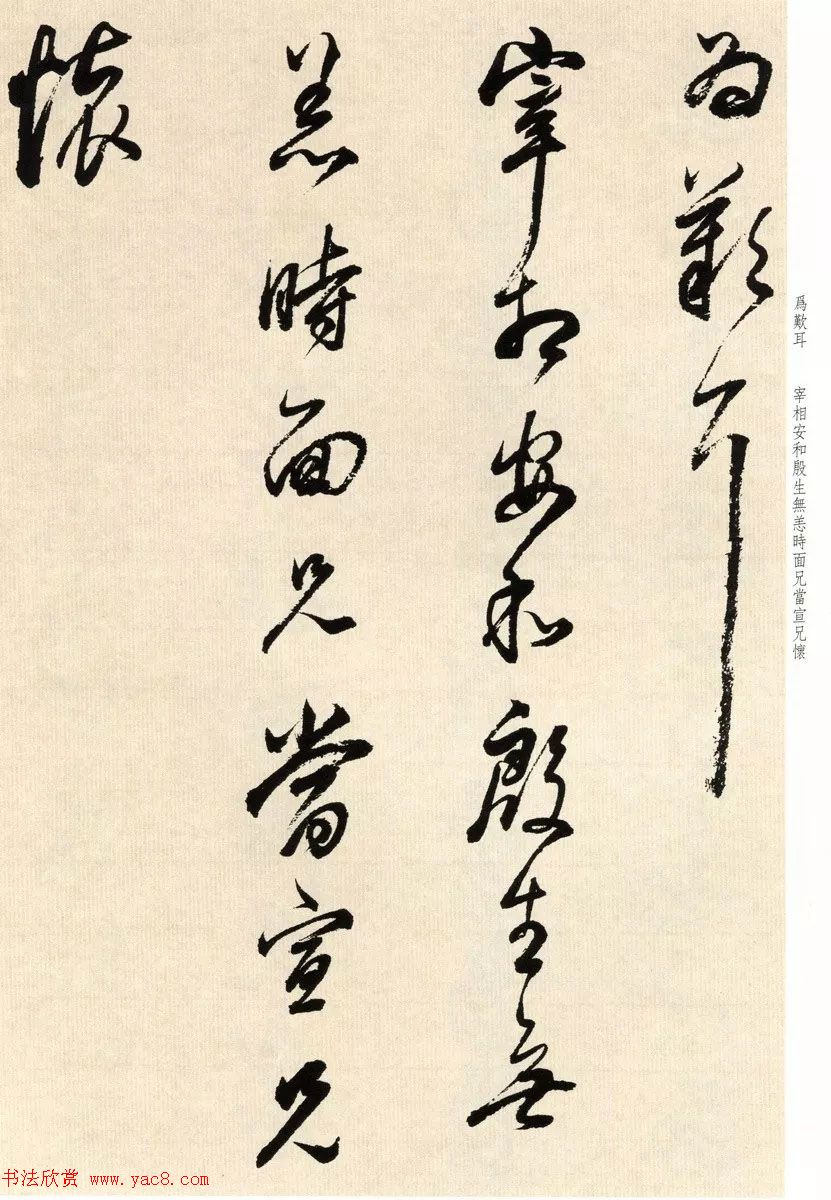 為歎耳
宰相安和殷生無
恙時面兄當宣兄
懷
爲歎耳　宰相安和殷生無恙時面兄當宣兄懷
书法欣赏 www.yac8.com